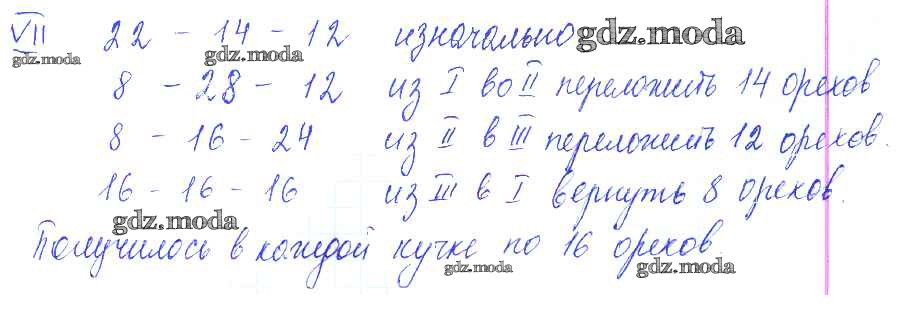 VII 22 - 14 - 12 изначально gdz.moda
gdz.moda
8 - 28 - 12 из I во II переложить 14 орехов
8 - 16 - 24 из II в III переложить 12 орехов.
16 - 16 - 16 из III в I вернуть 8 орехов.
gdz.moda
Получилось в каждой кучке по 16 орехов.
gdz.moda gdz.moda